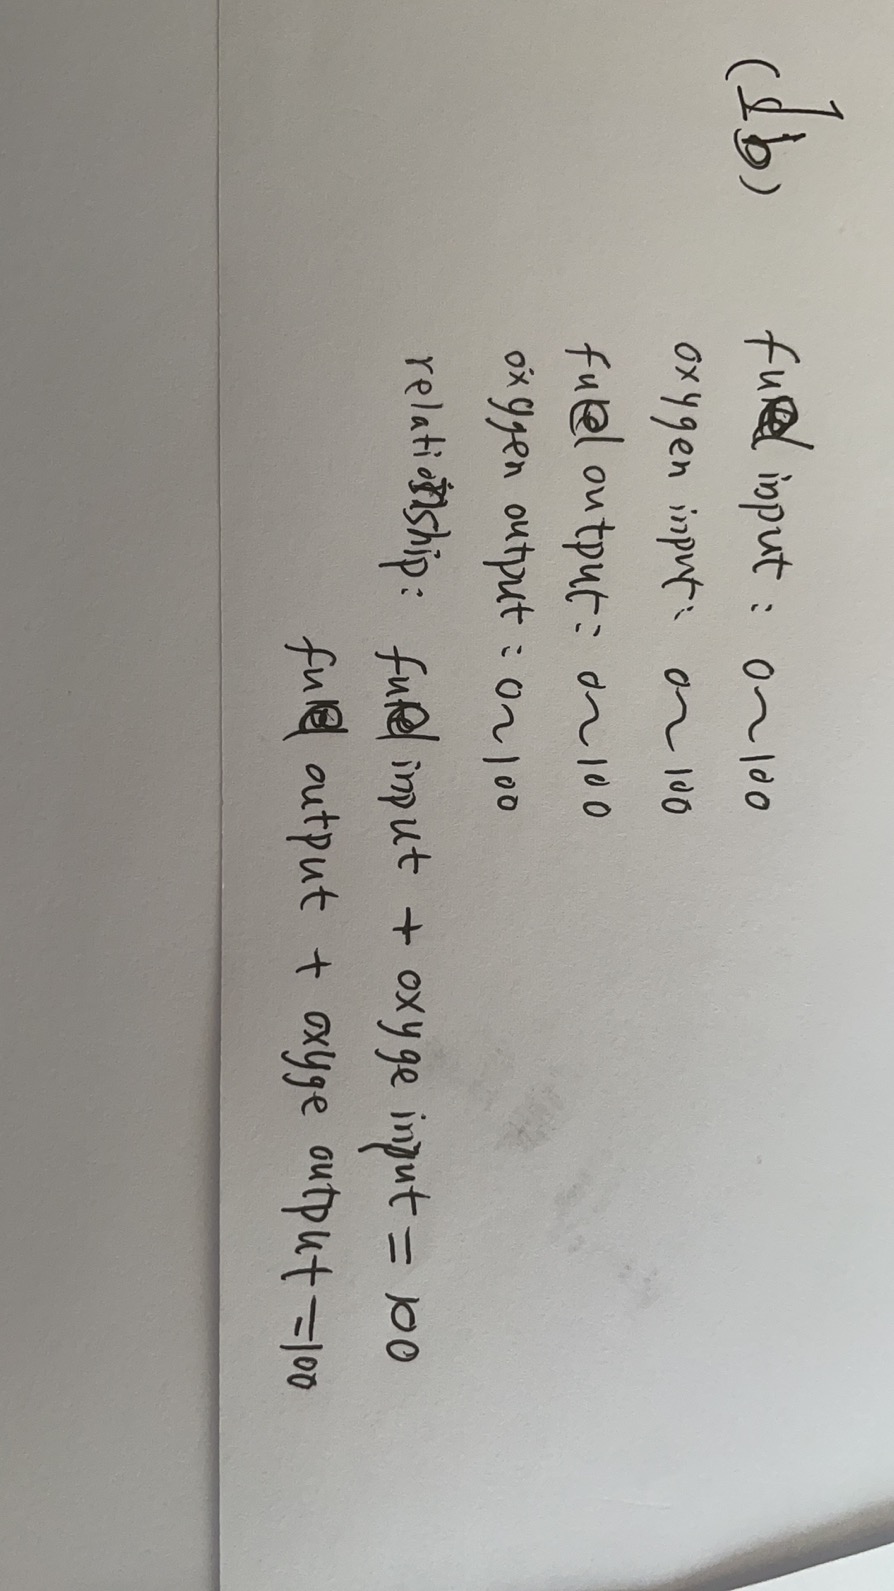 (1b)
fuel input : 0~100
oxygen input : 0~100
fuel output : 0~100
oxygen output : 0~100
relationship: fuel input + oxyge input = 100
fuel output + oxyge output = 100